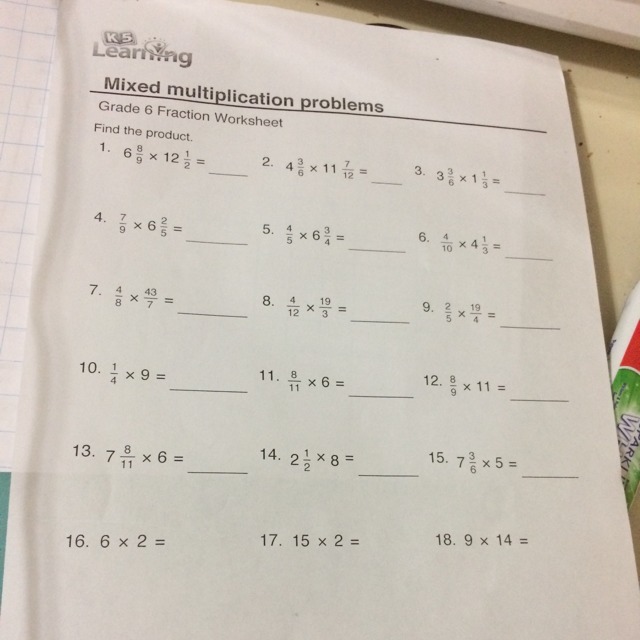 K5 Learning
Mixed multiplication problems
Grade 6 Fraction Worksheet
Find the product.
1. 6 8/9 × 12 1/2 = ____ 2. 4 3/6 × 11 7/12 = ____ 3. 3 3/6 × 1 1/3 = ____
4. 7/9 × 6 2/5 = ____ 5. 4/5 × 6 3/4 = ____ 6. 4/10 × 4 1/3 = ____
7. 4/8 × 43/7 = ____ 8. 4/12 × 19/3 = ____ 9. 2/5 × 19/4 = ____
10. 1/4 × 9 = ____ 11. 8/11 × 6 = ____ 12. 8/9 × 11 = ____
13. 7 8/11 × 6 = ____ 14. 2 1/2 × 8 = ____ 15. 7 3/6 × 5 = ____
16. 6 × 2 = 17. 15 × 2 = 18. 9 × 14 =